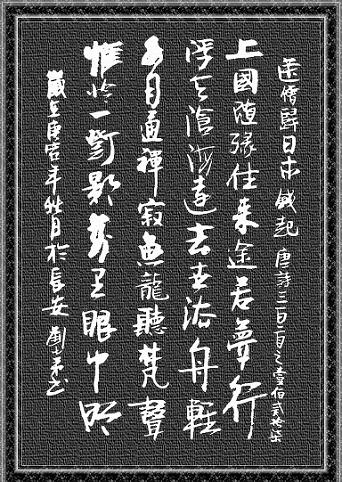 送僧歸日本 錢起 唐詩三百首之壹佰貳拾柒
上國隨緣住來途若夢行
浮天滄海遠去世法舟輕
水月通禪寂魚龍聽梵聲
惟憐一燈影萬里眼中明
歲在庚寅年秋月於長安 劉